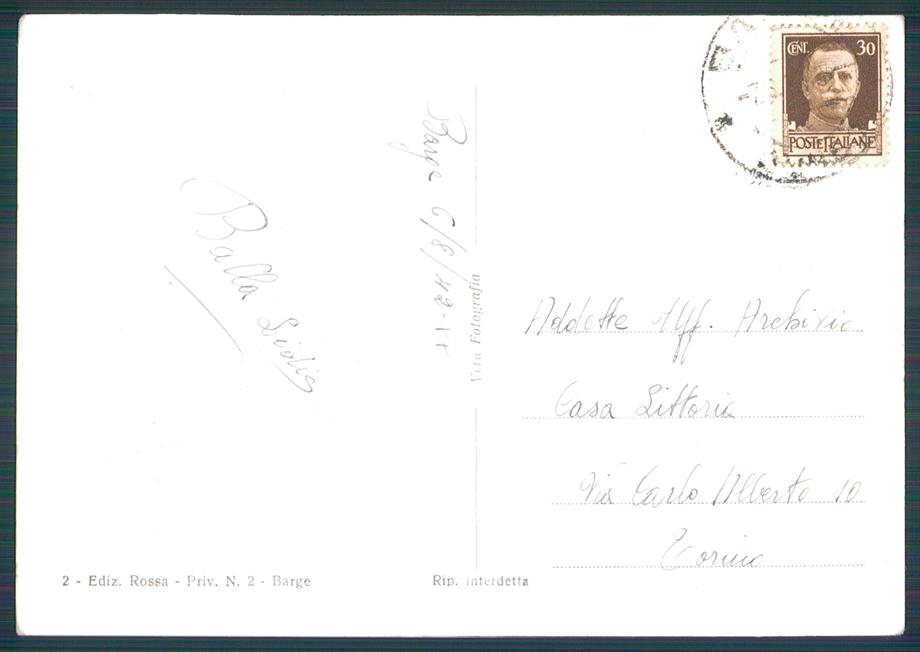 CENT. 30
POSTE ITALIANE
Barge 6/8/42-XX
Balla Lidia
Vera Fotografia
Addette Uff. Archivio
Casa Littoria
Via Carlo Alberto 10
Torino
2 - Ediz. Rossa - Priv. N. 2 - Barge
Rip. interdetta